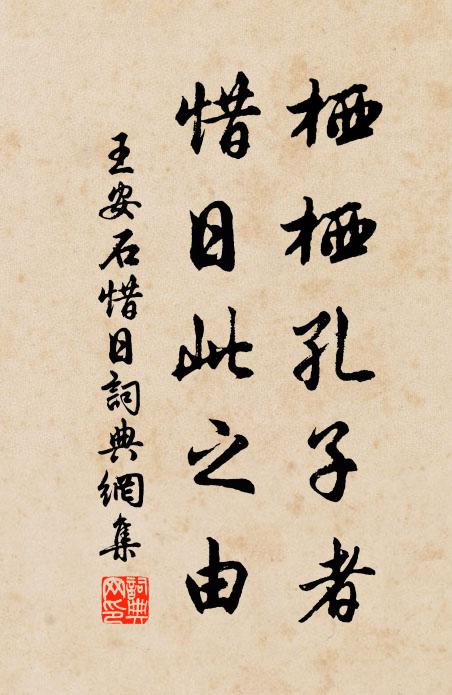 栖栖孔子者
惜日此之由
王安石惜日詞典網集
詞典網印